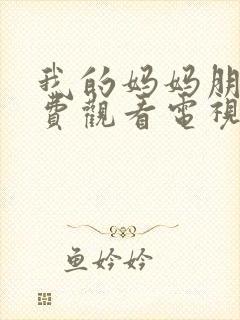 我的妈妈朋
費觀看電視
鱼妗妗